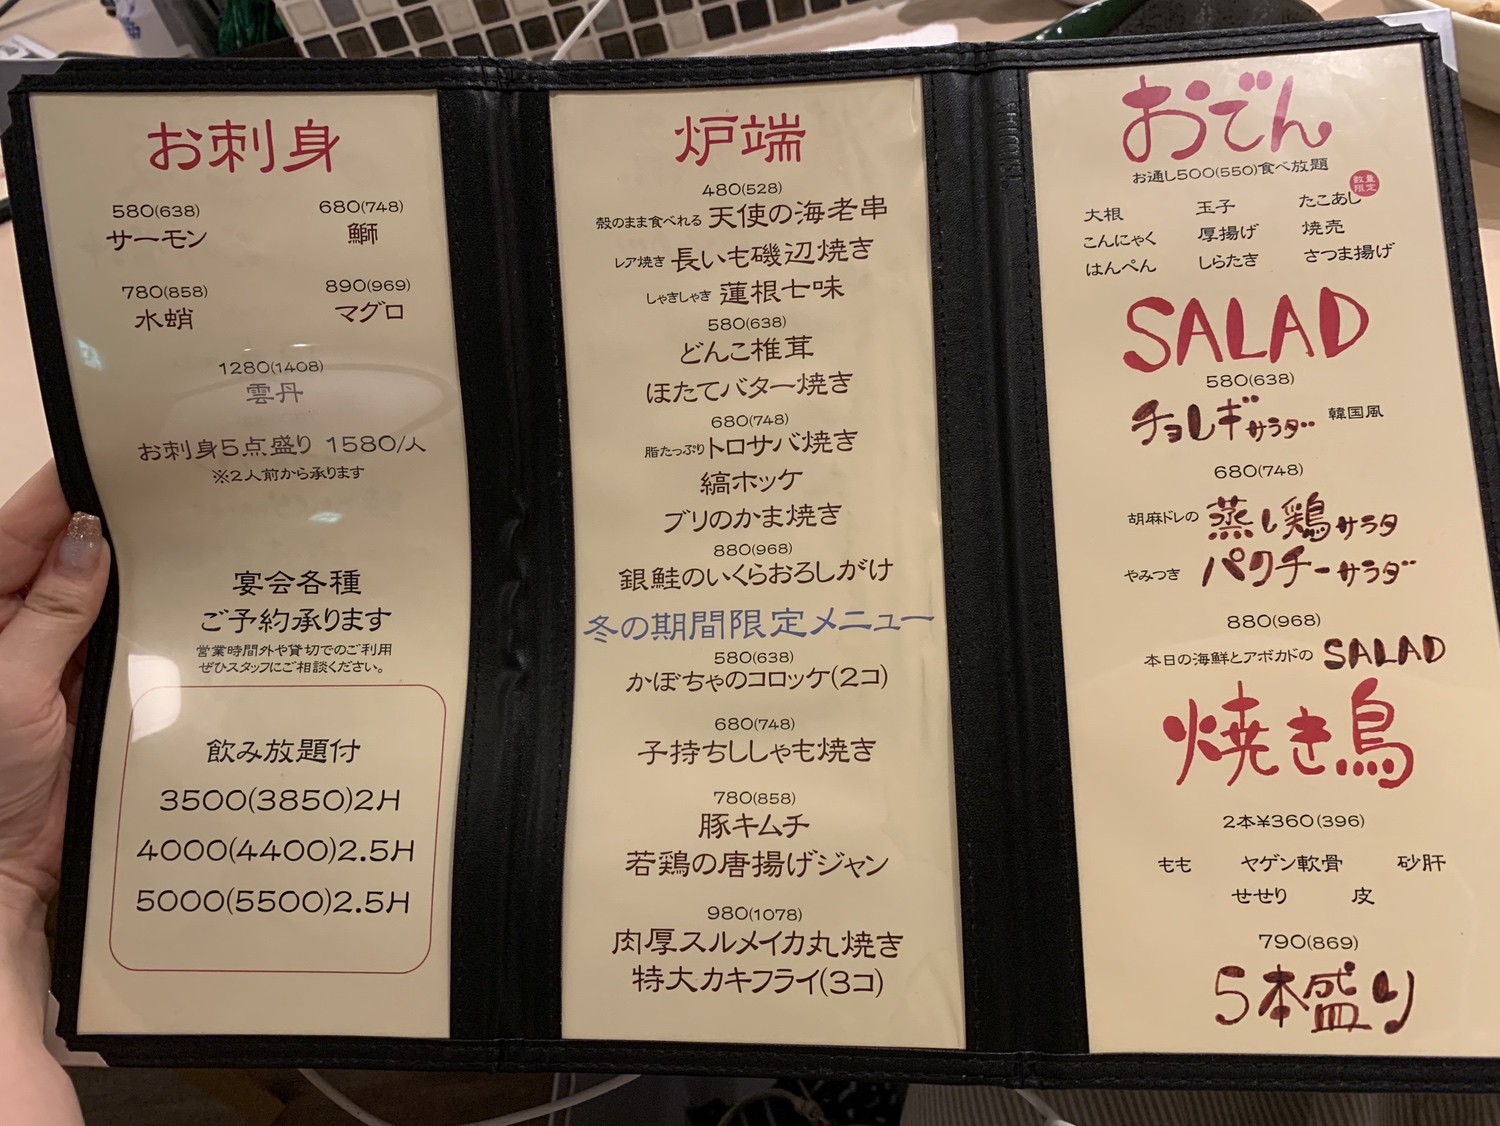 お刺身
580(638)
サーモン
680(748)
鰤
780(858)
水蛸
890(969)
マグロ
1280(1408)
雲丹
お刺身5点盛り 1580/人
※2人前から承ります
宴会各種
ご予約承ります
営業時間外や貸切でのご利用
ぜひスタッフにご相談ください。
飲み放題付
3500(3850)2H
4000(4400)2.5H
5000(5500)2.5H
炉端
480(528)
殻のまま食べれる 天使の海老串
レア焼き 長いも磯辺焼き
しゃきしゃき 蓮根七味
580(638)
どんこ椎茸
ほたてバター焼き
680(748)
脂たっぷり トロサバ焼き
縞ホッケ
ブリのかま焼き
880(968)
銀鮭のいくらおろしがけ
冬の期間限定メニュー
580(638)
かぼちゃのコロッケ(2コ)
680(748)
子持ちししゃも焼き
780(858)
豚キムチ
若鶏の唐揚げジャン
980(1078)
肉厚スルメイカ丸焼き
特大カキフライ(3コ)
おでん
お通し500(550)食べ放題
数量
限定
大根 玉子 たこあし
こんにゃく 厚揚げ 焼売
はんぺん しらたき さつま揚げ
SALAD
580(638)
チョレギサラダ 韓国風
680(748)
胡麻ドレの 蒸し鶏サラダ
やみつき パクチーサラダ
880(968)
本日の海鮮とアボカドの SALAD
焼き鳥
2本¥360(396)
もも ヤゲン軟骨 砂肝
せせり 皮
790(869)
5本盛り